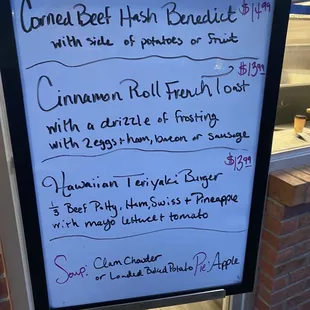 Corned Beef Hash Benedict $14.99
with side of potatoes or fruit
$13.99
Cinnamon Roll French Toast
with a drizzle of frosting
with 2 eggs + ham, bacon or sausage
$13.99
Hawaiian Teriyaki Burger
1/3 Beef Patty, Ham, Swiss + Pineapple
with mayo lettuce + tomato
Soup: Clam Chowder Pie: Apple
or Loaded Baked Potato